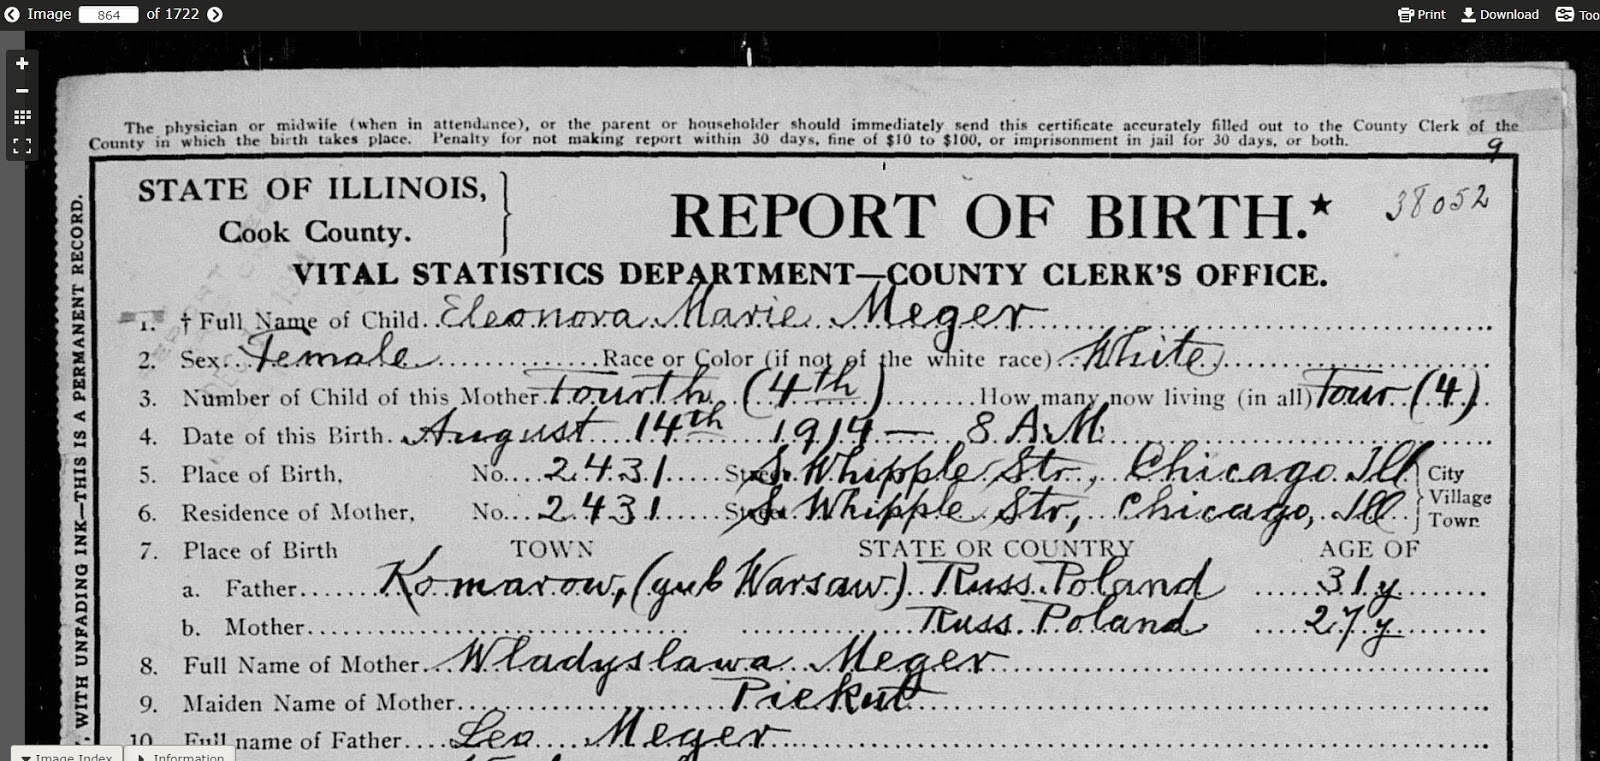 Image 864 of 1722 Print Download Too
The physician or midwife (when in attendance), or the parent or householder should immediately send this certificate accurately filled out to the County Clerk of the
County in which the birth takes place. Penalty for not making report within 30 days, fine of $10 to $100, or imprisonment in jail for 30 days, or both.
9
STATE OF ILLINOIS,
Cook County.
REPORT OF BIRTH.★
38052
VITAL STATISTICS DEPARTMENT—COUNTY CLERK'S OFFICE.
1. † Full Name of Child Eleonora Marie Meger
2. Sex Female Race or Color (if not of the white race) White
3. Number of Child of this Mother Fourth (4th) How many now living (in all) Four (4)
4. Date of this Birth August 14th 1914 — 8 A.M.
5. Place of Birth, No. 2431 Street S. Whipple Str., Chicago Ill City
6. Residence of Mother, No. 2431 Street S. Whipple Str., Chicago, Ill Village
Town
7. Place of Birth TOWN STATE OR COUNTRY AGE OF
a. Father Komarow, (gub Warsaw) Russ. Poland 31 y.
b. Mother Russ. Poland 27 y.
8. Full Name of Mother Wladyslawa Meger
9. Maiden Name of Mother Piekut
10. Full name of Father Leo Meger
WITH UNFADING INK—THIS IS A PERMANENT RECORD.
Image Index Information